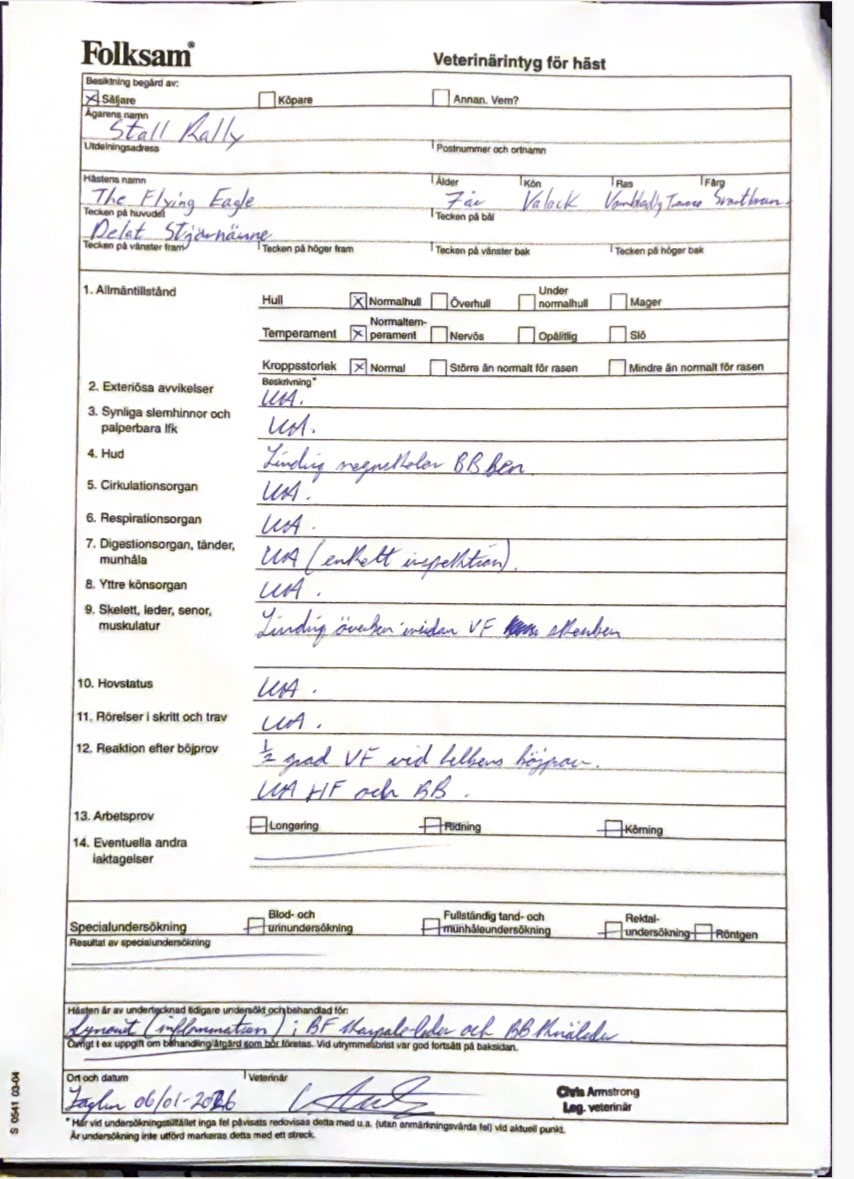 Folksam®
Veterinärintyg för häst
Besiktning begärd av:
Säljare Köpare Annan. Vem?
Ägarens namn
Stall Rally
Utdelningsadress Postnummer och ortnamn
Hästens namn Ålder Kön Ras Färg
The Flying Eagle 7 år Valack
Tecken på huvudet Tecken på bål
Delat
Tecken på vänster fram Tecken på höger fram Tecken på vänster bak Tecken på höger bak
1. Allmäntillstånd
Hull Normalhull Överhull Under normalhull Mager
Temperament Normaltem-perament Nervös Opålitlig Slö
Kroppsstorlek Normal Större än normalt för rasen Mindre än normalt för rasen
Beskrivning*
2. Exteriösa avvikelser UA.
3. Synliga slemhinnor och
palperbara lfk UA.
4. Hud Lindrig BB ben
5. Cirkulationsorgan UA.
6. Respirationsorgan UA.
7. Digestionsorgan, tänder,
munhåla UA (enkelt inspektion).
8. Yttre könsorgan UA.
9. Skelett, leder, senor,
muskulatur Lindrig överben insidan VF skenben
10. Hovstatus UA.
11. Rörelser i skritt och trav UA.
12. Reaktion efter böjprov ½ grad VF vid helbens böjprov.
UA HF och BB.
13. Arbetsprov Longering Ridning Körning
14. Eventuella andra
iaktagelser
Specialundersökning Blod- och urinundersökning Fullständig tand- och munhåleundersökning Rektal-undersökning Röntgen
Resultat av specialundersökning
Hästen är av undertecknad tidigare undersökt och behandlad för:
(inflammation) i BF och BB knäleder
Övrigt t ex uppgift om behandling/åtgärd som bör företas. Vid utrymmesbrist var god fortsätt på baksidan.
Ort och datum Veterinär
06/01-2026
Chris Armstrong
Leg. veterinär
* Har vid undersökningstillfället inga fel påvisats redovisas detta med u.a. (utan anmärkningsvärda fel) vid aktuell punkt.
Är undersökning inte utförd markeras detta med ett streck.
S 0541 03-04